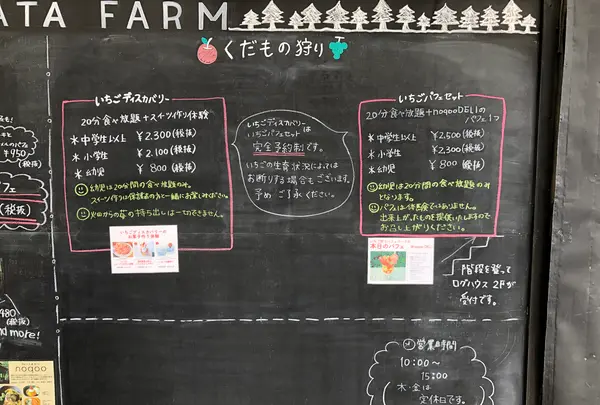 ATA FARM
くだもの狩り
いちごディスカバリー
20分食べ放題+スイーツ作り体験
*中学生以上 ¥2.300(税抜)
*小学生 ¥2.100(税抜)
*幼児 ¥800(税抜)
幼児は20分間の食べ放題のみ。
スイーツ作りは保護者の方と一緒にお楽しみください。
畑からの苺の持ち出しは一切できません。
いちごディスカバリー
いちごパフェセット は
完全予約制です。
いちごの生育状況によっては
お断りする場合もございます。
予めご了承ください。
いちごパフェセット
20分食べ放題+noqoo DELIの
パフェ1つ
*中学生以上 ¥2,500(税抜)
*小学生 ¥2,300(税抜)
*幼児 ¥800(税抜)
幼児は20分間の食べ放題のみ
となります。
パフェは体験ではありません。
出来上がったものを提供いたしますので
お召し上がりください。
いちごディスカバリーの
本日のパフェ
階段を登って
ログハウス2Fが
受付です。
営業時間
10:00~
15:00
木・金は
定休日です。
¥950
(税抜)
(税抜)
480
(税抜)
nd more!
noqoo